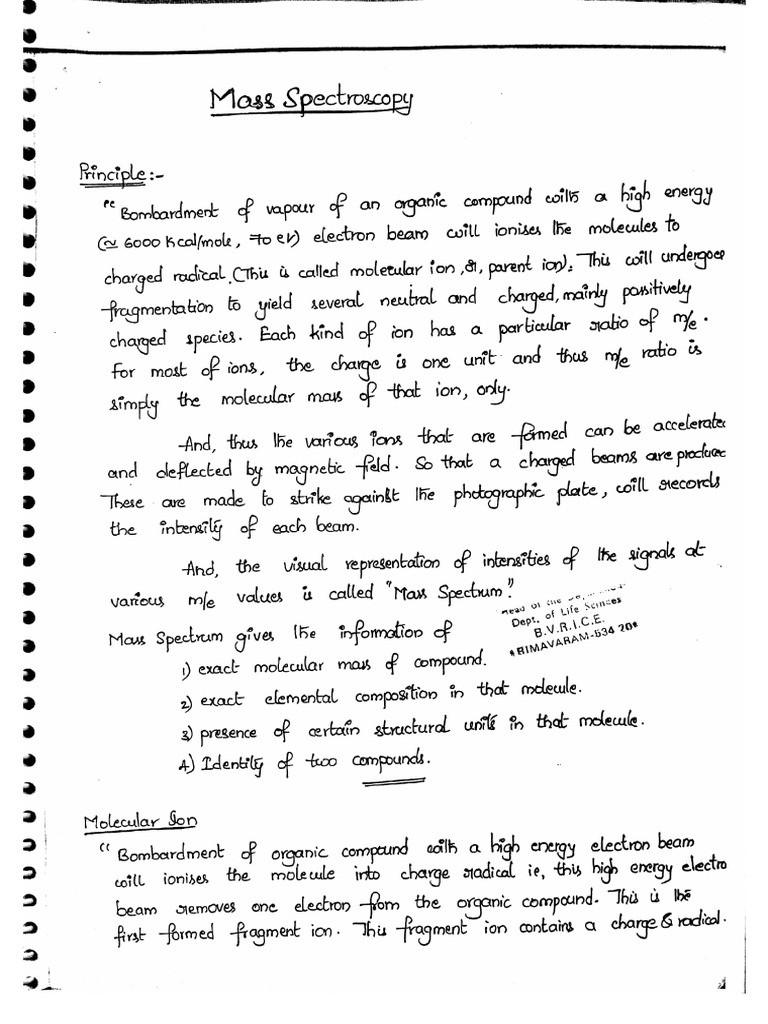 Mass Spectroscopy
Principle:-
"Bombardment of vapour of an organic compound with a high energy
(≃ 6000 Kcal/mole, 70 eV) electron beam will ionises the molecules to
charged radical. (This is called molecular ion, or, parent ion). This will undergoes
fragmentation to yield several neutral and charged, mainly possitively
charged species. Each kind of ion has a particular ratio of m/e.
For most of ions, the charge is one unit and thus m/e ratio is
simply the molecular mass of that ion, only.
And, thus the various ions that are formed can be accelerate
and deflected by magnetic field. So that a charged beams are produce
These are made to strike against the photographic plate, will records
the intensity of each beam.
And, the visual representation of intensities of the signals at
various m/e values is called "Mass Spectrum".
Head of the
Dept. of Life Sciences
B.V.R.I.C.E.
*BIMAVARAM-534 20*
Mass Spectrum gives the information of
1) exact molecular mass of compound.
2) exact elemental composition in that molecule.
3) presence of certain structural units in that molecule.
4) Identity of two compounds.
Molecular Ion
"Bombardment of organic compound with a high energy electron beam
will ionises the molecule into charge radical ie, this high energy electro
beam removes one electron from the organic compound. This is the
first formed fragment ion. This fragment ion contains a charge & radical.